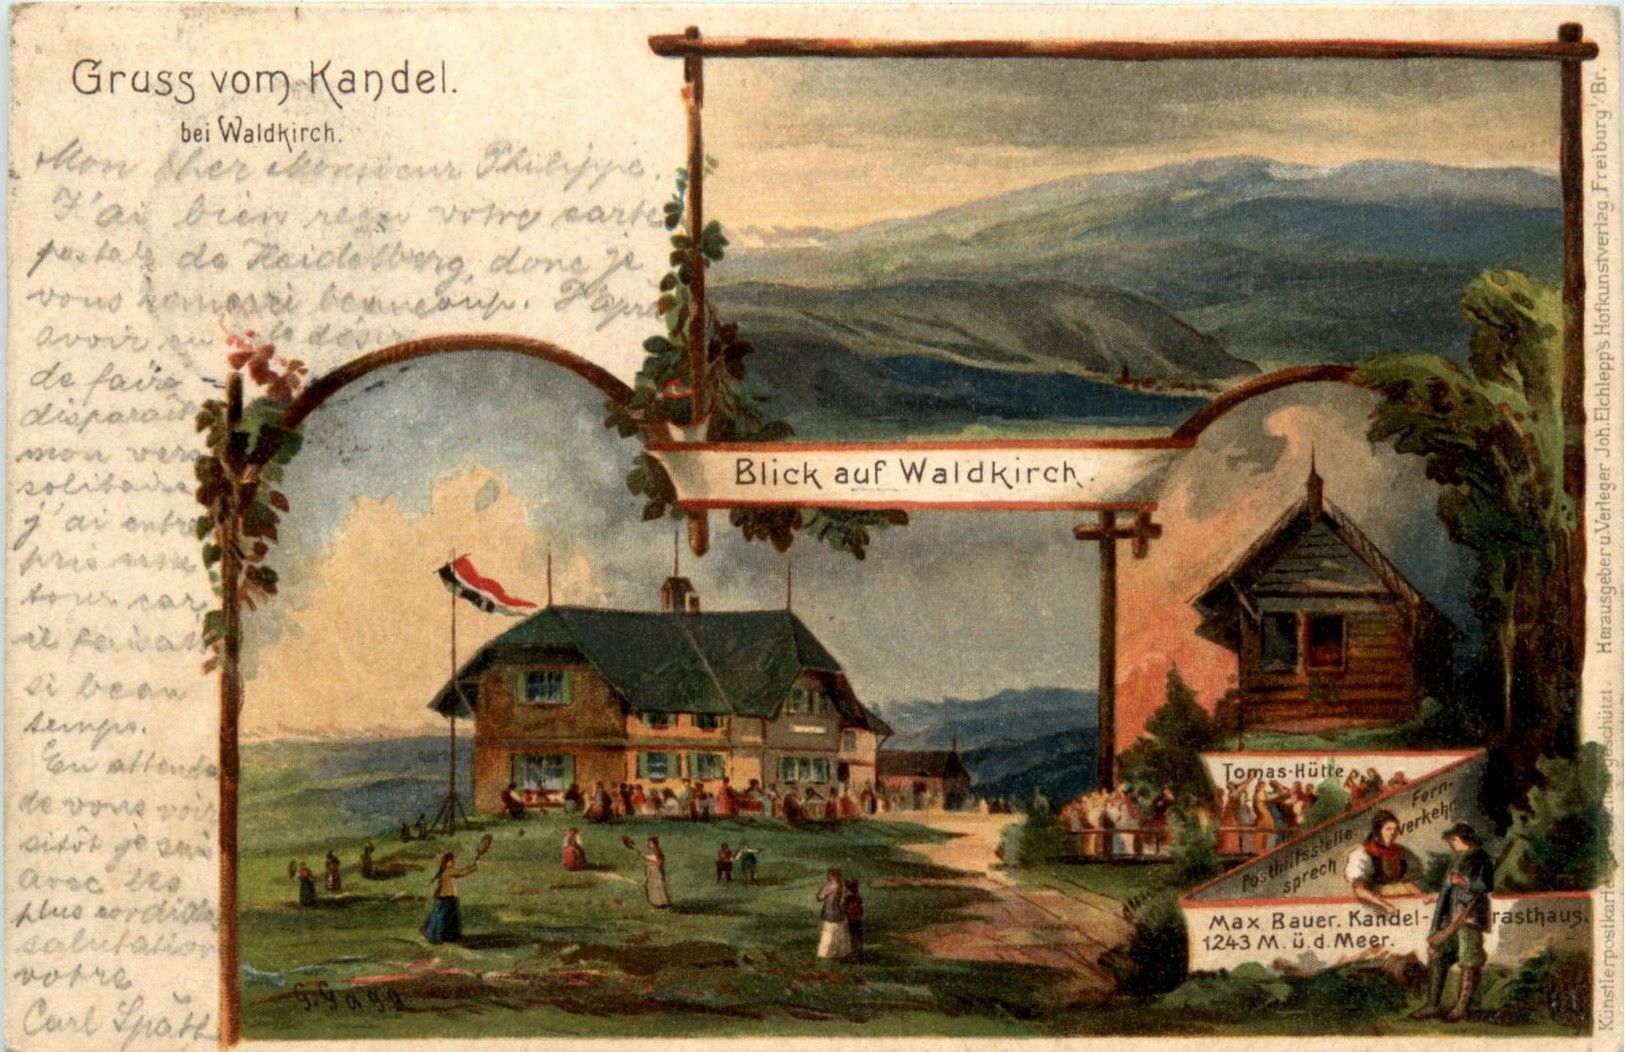 Gruss vom Kandel.
bei Waldkirch.
Mon Cher Monsieur Philippe.
J'ai bien reçu votre carte
postale de Heidelberg, donc je
vous beaucoup.
avoir eu le désir
de faire
disparaît
mon vers
solitaire
j'ai entre
pris une
tour car
il
si beau
temps.
En attend
de vous voir
sitôt je suis
avec les
plus cordiales
salutation
votre
Carl Späth
Blick auf Waldkirch.
Tomas-Hütte
Fern-
verkehr
Posthilfsstelle
sprech
Max Bauer. Kandel-rasthaus.
1243 M. ü. d. Meer.
G. Gagg
Künstlerpostkarte geschützt. Herausgeber u. Verleger Joh. Elchlepp's Hofkunstverlag, Freiburg i/Br.